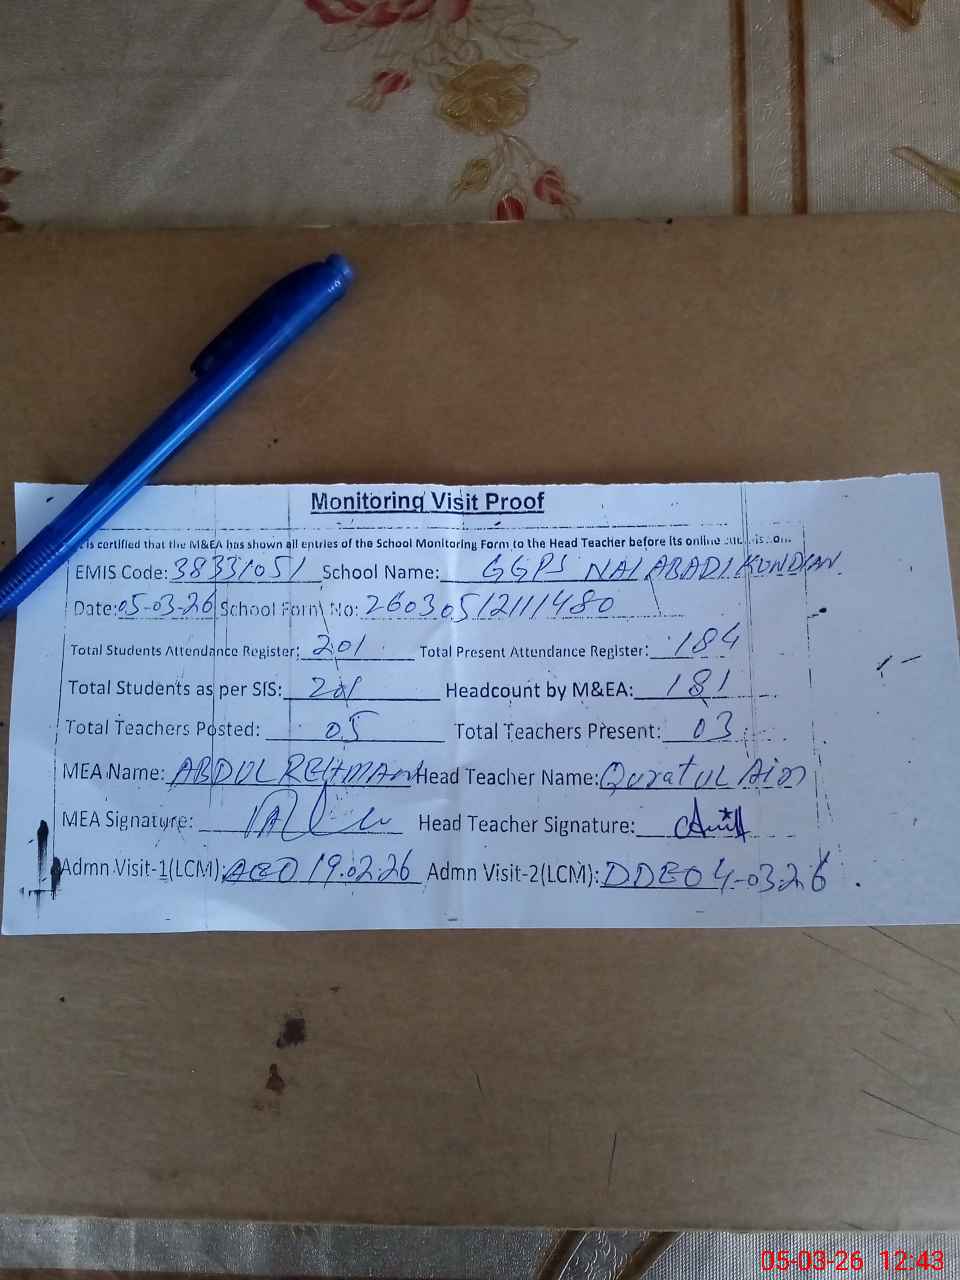 Monitoring Visit Proof
is certified that the M&EA has shown all entries of the School Monitoring Form to the Head Teacher before its online
EMIS Code: 38331051 School Name: GGPS NAI ABADI KUNDIAN
Date: 05-03-26 School Form No: 2603051211480
Total Students Attendance Register: 201 Total Present Attendance Register: 184
Total Students as per SIS: 201 Headcount by M&EA: 181
Total Teachers Posted: 05 Total Teachers Present: 03
MEA Name: ABDUL REHMAN Head Teacher Name: Quratul Ain
MEA Signature: Head Teacher Signature:
Admn Visit-1(LCM): AEO 19.02.26 Admn Visit-2(LCM): DDEO 4-03-26
05-03-26 12:43